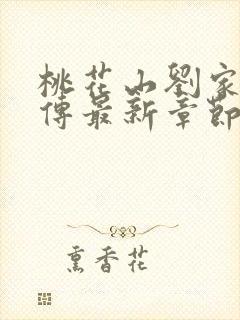 桃花山劉家
傳最新章節
熏香花